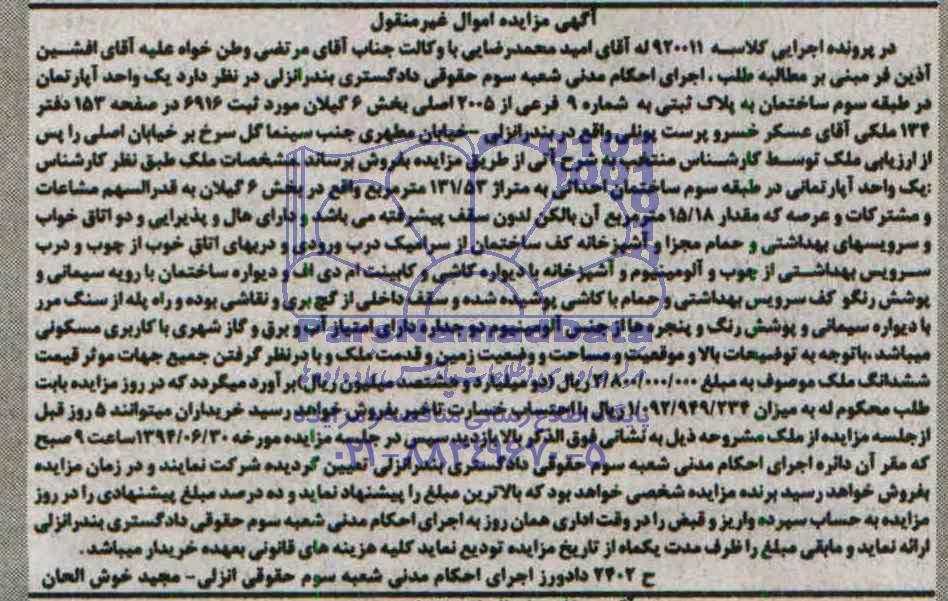 آگهی مزایده اموال غیرمنقول
در پرونده اجرایی کلاسه ۹۲۰۰۱۱ له آقای امید محمدرضایی با وکالت جناب آقای مرتضی وطن خواه علیه آقای افشین
آذین فر مبنی بر مطالبه طلب ، اجرای احکام مدنی شعبه سوم حقوقی دادگستری بندرانزلی در نظر دارد یک واحد آپارتمان
در طبقه سوم ساختمان به پلاک ثبتی به شماره ۹ فرعی از ۲۰۰۵ اصلی بخش ۶ گیلان مورد ثبت ۶۹۱۶ در صفحه ۱۵۳ دفتر
۱۳۴ ملکی آقای عسکر خسرو پرست پونلی واقع در بندرانزلی – خیابان مطهری جنب سینما گل سرخ بر خیابان اصلی را پس
از ارزیابی ملک توسط کارشناس منتخب به شرح آتی از طریق مزایده بفروش برساند مشخصات ملک طبق نظر کارشناس
:یک واحد آپارتمانی در طبقه سوم ساختمان احداثی به متراژ ۱۳۱/۵۳ مترمربع واقع در بخش ۶ گیلان به قدرالسهم مشاعات
و مشترکات و عرصه که مقدار ۱۵/۱۸ مترمربع آن بالکن لدون سقف پیشرفته می باشد و دارای هال و پذیرایی و دو اتاق خواب
و سرویسهای بهداشتی و حمام مجزا و آشپزخانه کف ساختمان از سرامیک درب ورودی و دربهای اتاق خوب از چوب و درب
سرویس بهداشتی از چوب و آلومینیوم و آشپزخانه با دیواره کاشی و کابینت ام دی اف و دیواره ساختمان با رویه سیمانی و
پوشش رنگو کف سرویس بهداشتی و حمام با کاشی پوشیده شده و سقف داخلی از گچ بری و نقاشی بوده و راه پله از سنگ مرر
با دیواره سیمانی و پوشش رنگ و پنجره ها از جنس آلومینیوم دو جداره دارای امتیاز آب و برق و گاز شهری با کاربری مسکونی
میباشد ،باتوجه به توضیحات بالا و موقعیت و مساحت و وضعیت زمین و قدمت ملک و با درنظر گرفتن جمیع جهات موثر قیمت
ششدانگ ملک موصوف به مبلغ ۲/۸۰۰/۰۰۰/۰۰۰ ریال (دو میلیارد و هشتصد میلیون ریال) برآورد میگردد که در روز مزایده بابت
طلب محکوم له به میزان ریال با احتساب خسارت تاخیر بفروش خواهد رسید خریداران میتوانند ۵ روز قبل
ازجلسه مزایده از ملک مشروحه ذیل به نشانی فوق الذکر بالا بازدید سپس در جلسه مزایده مورخه ۱۳۹۴/۰۶/۳۰ ساعت ۹ صبح
که مقر آن دائره اجرای احکام مدنی شعبه سوم حقوقی دادگستری بندرانزلی تعیین گردیده شرکت نمایند و در زمان مزایده
بفروش خواهد رسید برنده مزایده شخصی خواهد بود که بالاترین مبلغ را پیشنهاد نماید و ده درصد مبلغ پیشنهادی را در روز
مزایده به حساب سپرده واریز و قبض را در وقت اداری همان روز به اجرای احکام مدنی شعبه سوم حقوقی دادگستری بندرانزلی
ارائه نماید و مابقی مبلغ را ظرف مدت یکماه از تاریخ مزایده تودیع نماید کلیه هزینه های قانونی بعهده خریدار میباشد .
ح ۲۴۰۲ دادورز اجرای احکام مدنی شعبه سوم حقوقی انزلی- مجید خوش الحان
ParsNamadData
پایگاه اطلاع رسانی مناقصه و مزایده
۰۲۱-۸۸۳۴۹۶۷۰-۵